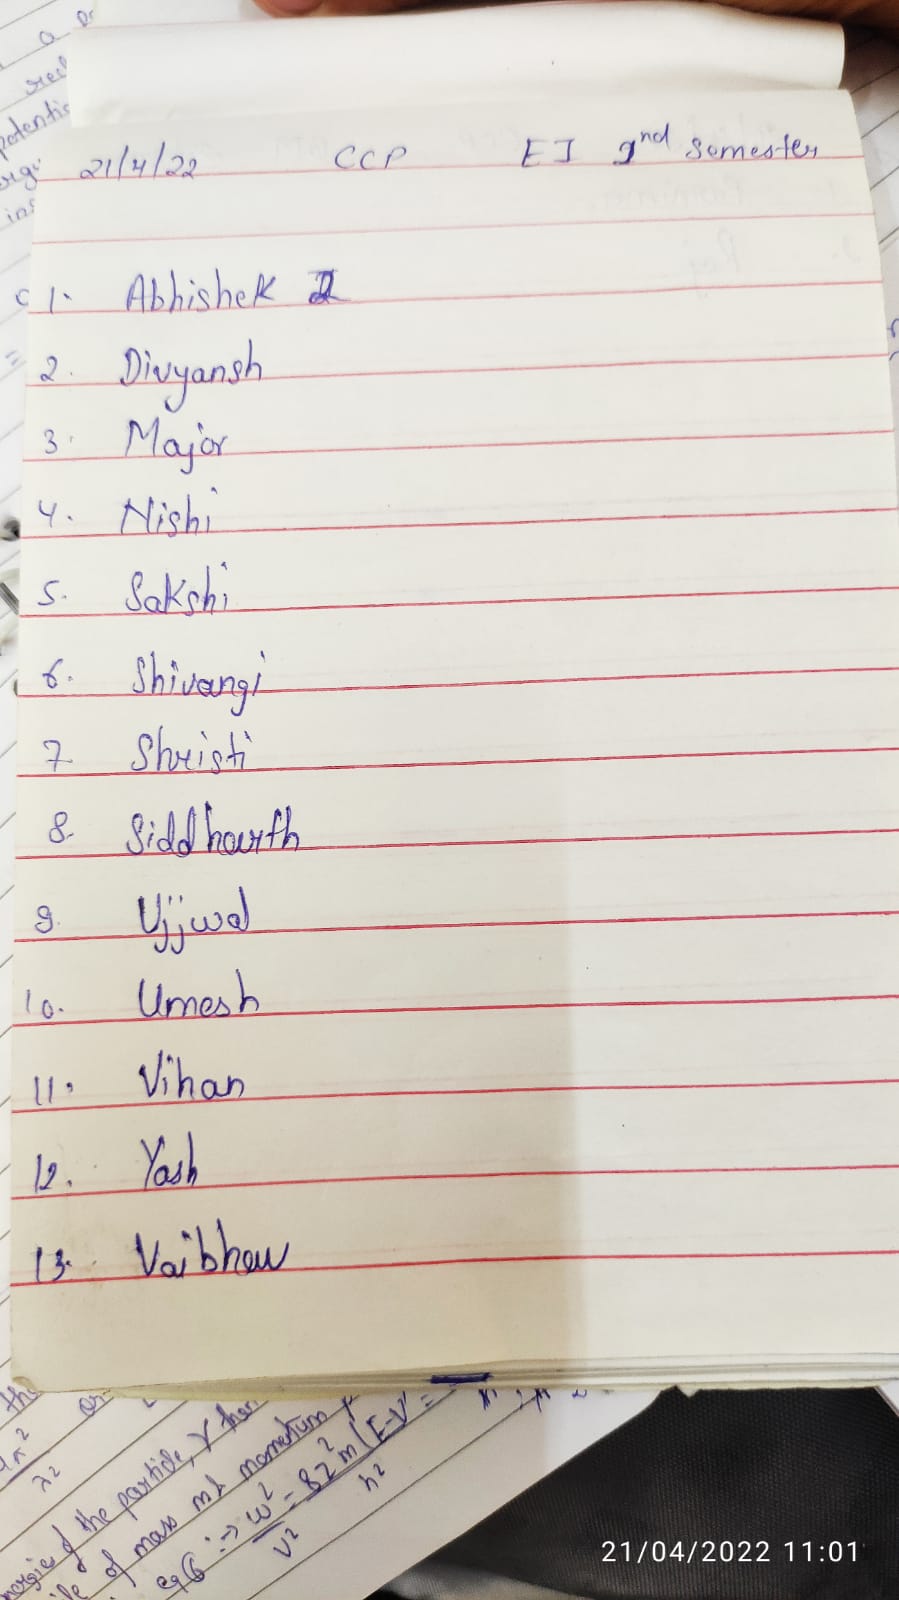 21/4/22 CCP EI 2nd Semester
1. Abhishek
2. Divyansh
3. Major
4. Nishi
5. Sakshi
6. Shivangi
7. Shristi
8. Siddharth
9. Ujjwal
10. Umesh
11. Vihan
12. Yash
13. Vaibhav
the
of the particle,
of mass momentum
21/04/2022 11:01